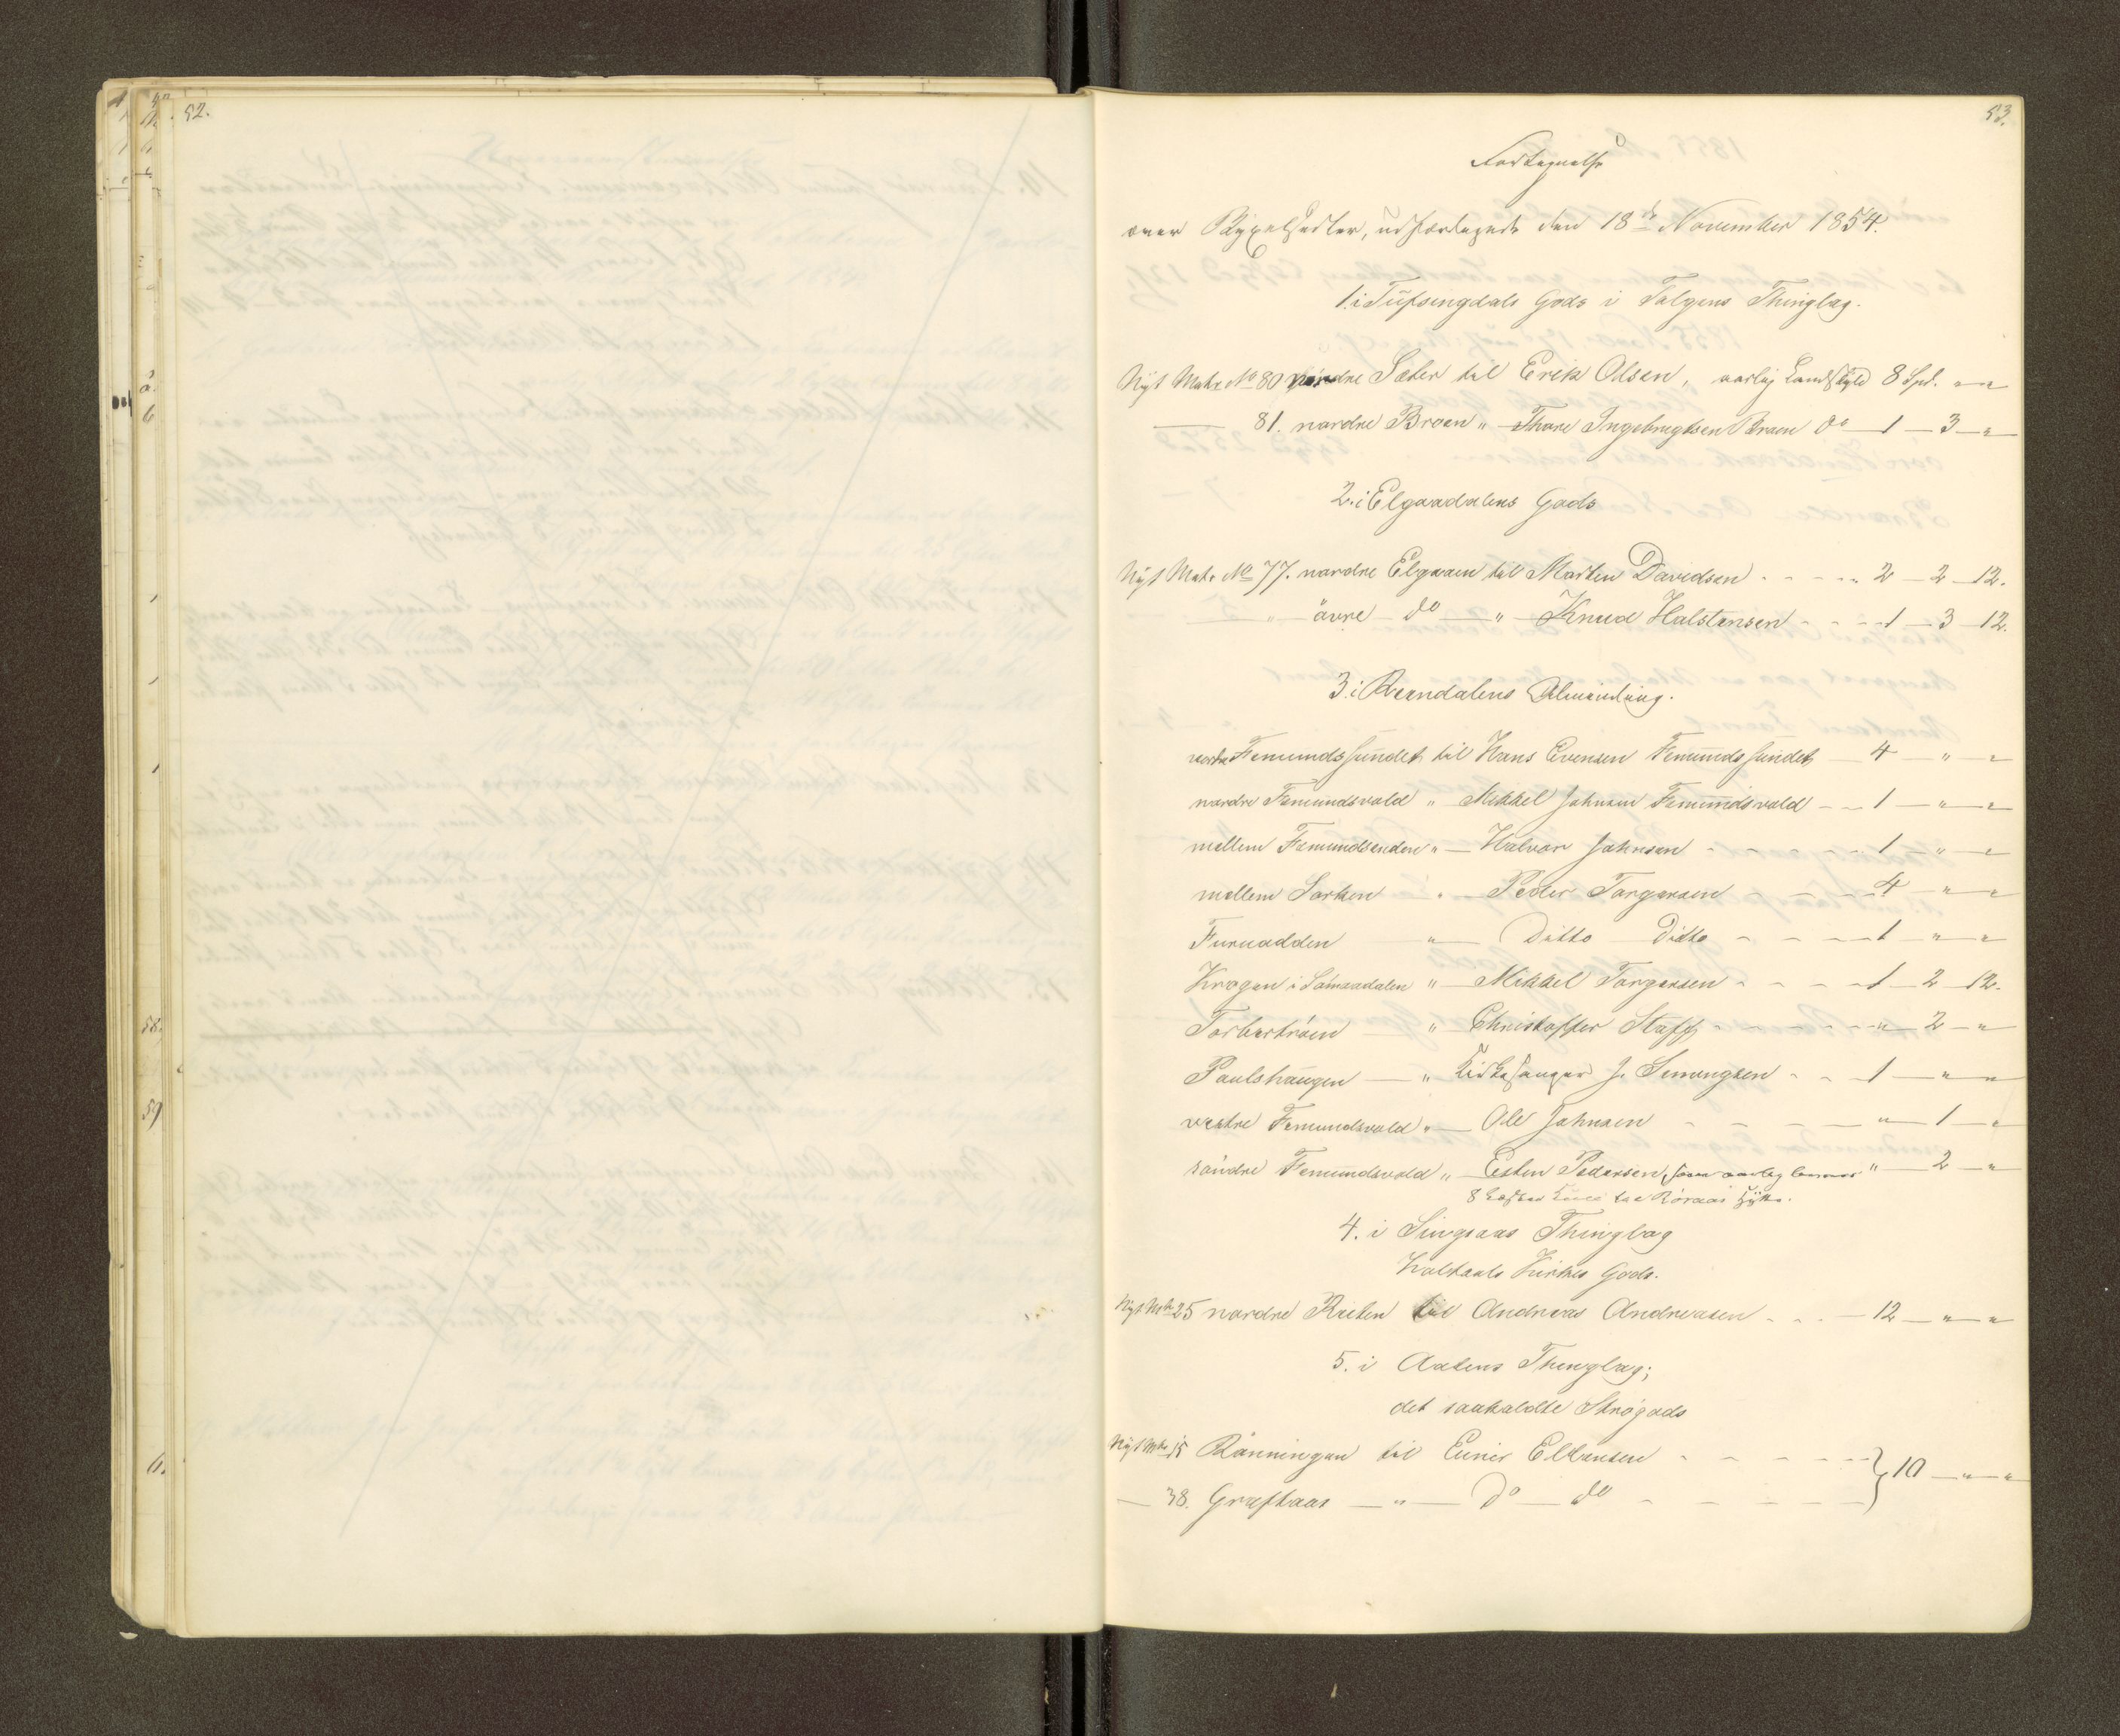 52.
53.
Fortegnelse
over Bÿxelsedler, udfærdigede den 18de November 1854.
1. i Tufsingdals Gods i Tolgens Thinglag.
Nÿt Matr. No 80 nordre Sæter til Erik Olsen, aarlig Landskyld 8 Spd. " "
81. nordre Broen " Thore Ingebrigtsen Broen do 1 3 "
2. i Elgaadalens Gods
Nÿt Matr No 77. nordre Elgaaen til Morten Davidsen 2 2 12.
" övre do " Knud Halstensen 1 3 12.
3. i Rendalens Alminding.
Femundssundet til Hans Evensen Femundssundet 4 " "
nordre Femundsvold " Mikkel Johnsen Femundsvold 1 " "
mellem Femundsenden " Halvor Johnsen 1 " "
mellem Sorken " Peder Torgersen 4 " "
Furuodden " Ditto Ditto 1 " "
Krogen i Sömaadalen " Mikkel Torgersen 1 2 12.
Torbertröen " Christoffer Staff " 2 "
Paulshaugen " Kirkesanger J. Simengsen 1 " "
vestre Femundsvold " Ole Johnsen " 1 "
söndre Femundsvold " Esten Pedersen, som aarlig leverer " 2 "
8 Læster Kull til Röraas Hÿtte.
4. i Singsaas Thinglag
Holtaals Kirkes Gods.
Nÿt Mtr 25 nordre Rieten til Andreas Andreasen 12 " "
5. i Aalens Thinglag;
det saakaldte Strögods
Nÿt Mtr 15 Rönningen til Einer Ellensen } 10 " "
38. Græftaas " do do